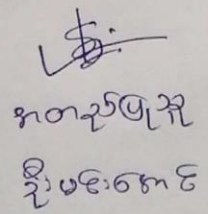 အတည်ပြုသူ
ဦးမင်းအောင်